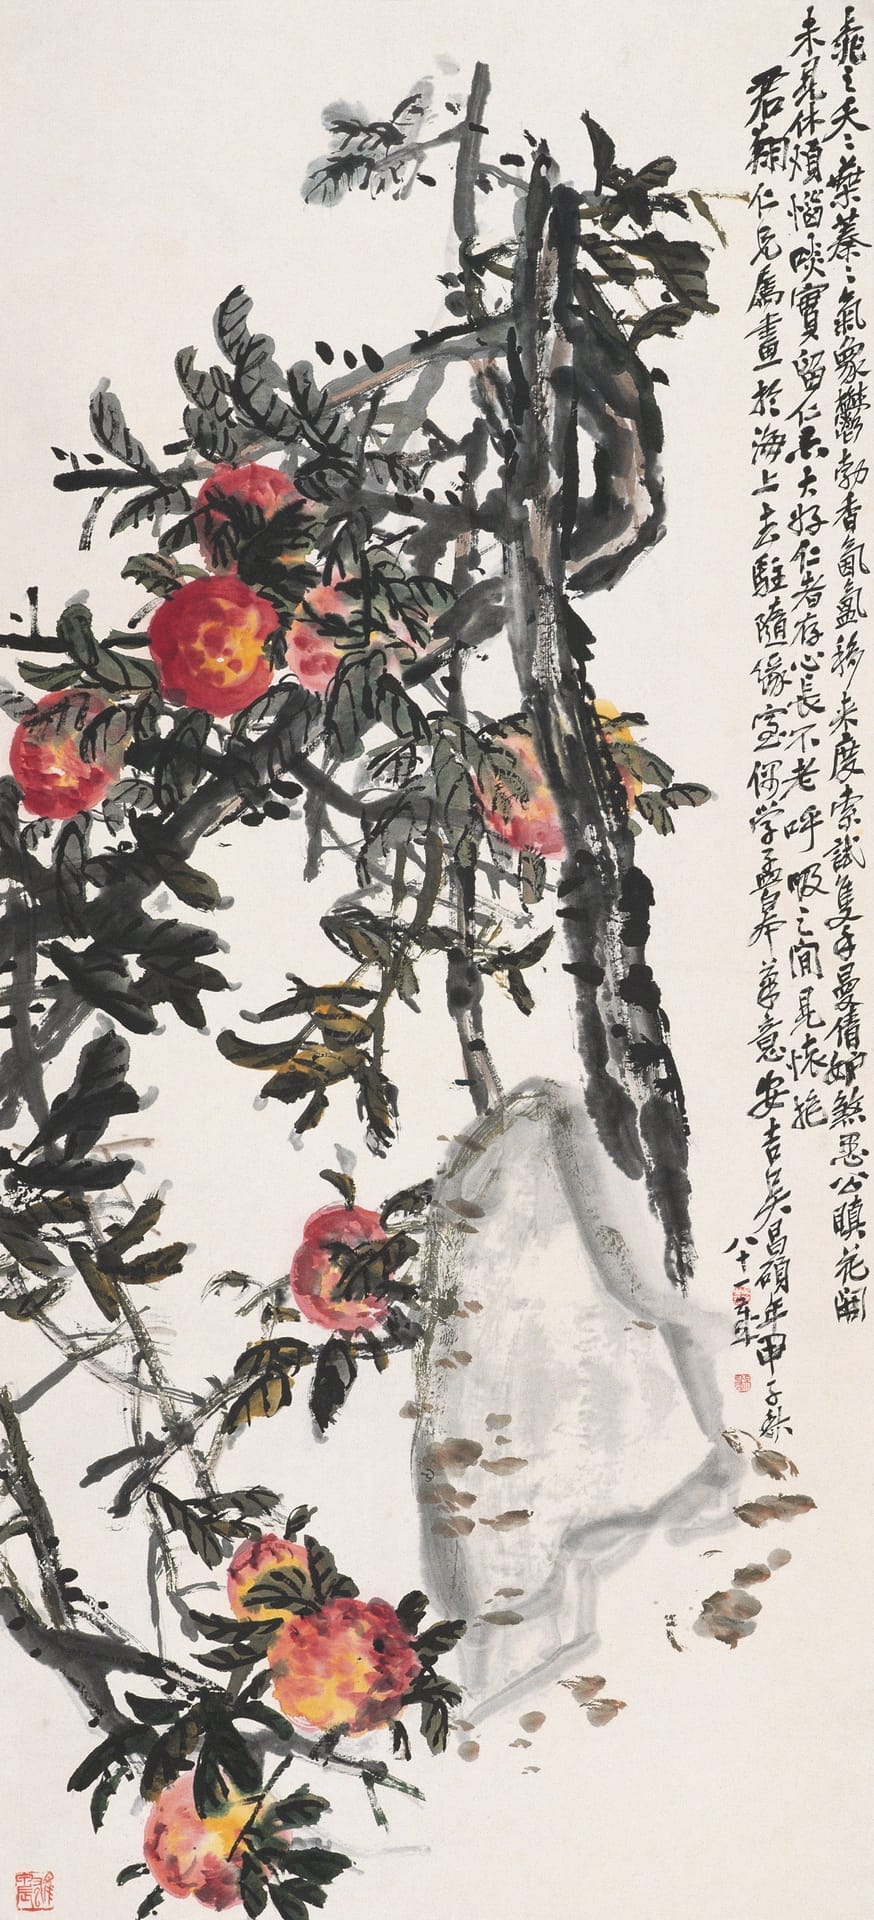 桃之夭夭葉蓁蓁氣象鬱勃香氤氳移来度索試隻手曼倩妒煞愚公瞋花開
未是休煩惱啖實留仁亦大好仁者存心長不老呼吸之閒見懷抱
君翔仁兄屬畫於海上去駐隨緣室偶學孟皋筆意安吉吳昌碩年甲子秋
八十一